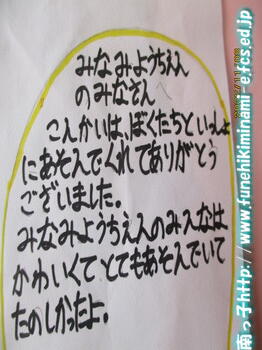 みなみようちえん
のみなさん
こんかいは、ぼくたちといっしょ
にあそんでくれてありがとう
ございました。
みなみようちえんのみんなは
かわいくてとてもあそんでいて
たのしかったよ。
南っ子http://www.funehikiminami-e.fcs.ed.jp/